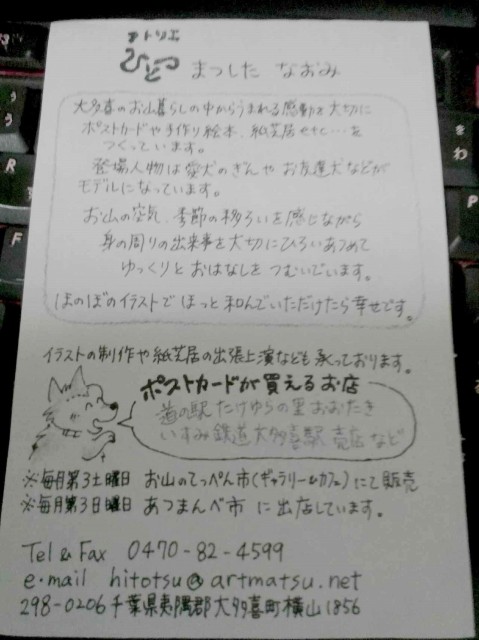 アトリエ
ひとつ まつした なおみ
大多喜のお山暮らしの中からうまれる感動を大切に
ポストカードや手作り絵本、紙芝居etc…を
つくっています。
登場人物は愛犬のぎんや お友達犬などが
モデルになっています。
お山の空気、季節の移ろいを感じながら
身の周りの出来事を大切にひろいあつめて
ゆっくりと おはなしを つむいでいます。
ほのぼのイラストで ほっと 和んでいただけたら幸せです。
イラストの制作や紙芝居の出張上演なども承っております。
ポストカードが買えるお店
道の駅 たけゆらの里 おおたき
いすみ鉄道 大多喜駅 売店 など
※毎月第3土曜日 お山のてっぺん市(ギャラリー&カフェ)にて販売
※毎月第3日曜日 あつまんべ市 に出店しています。
Tel & Fax 0470-82-4599
e・mail hitotsu@artmatsu.net
298-0206 千葉県夷隅郡大多喜町横山1856
R
F
わ